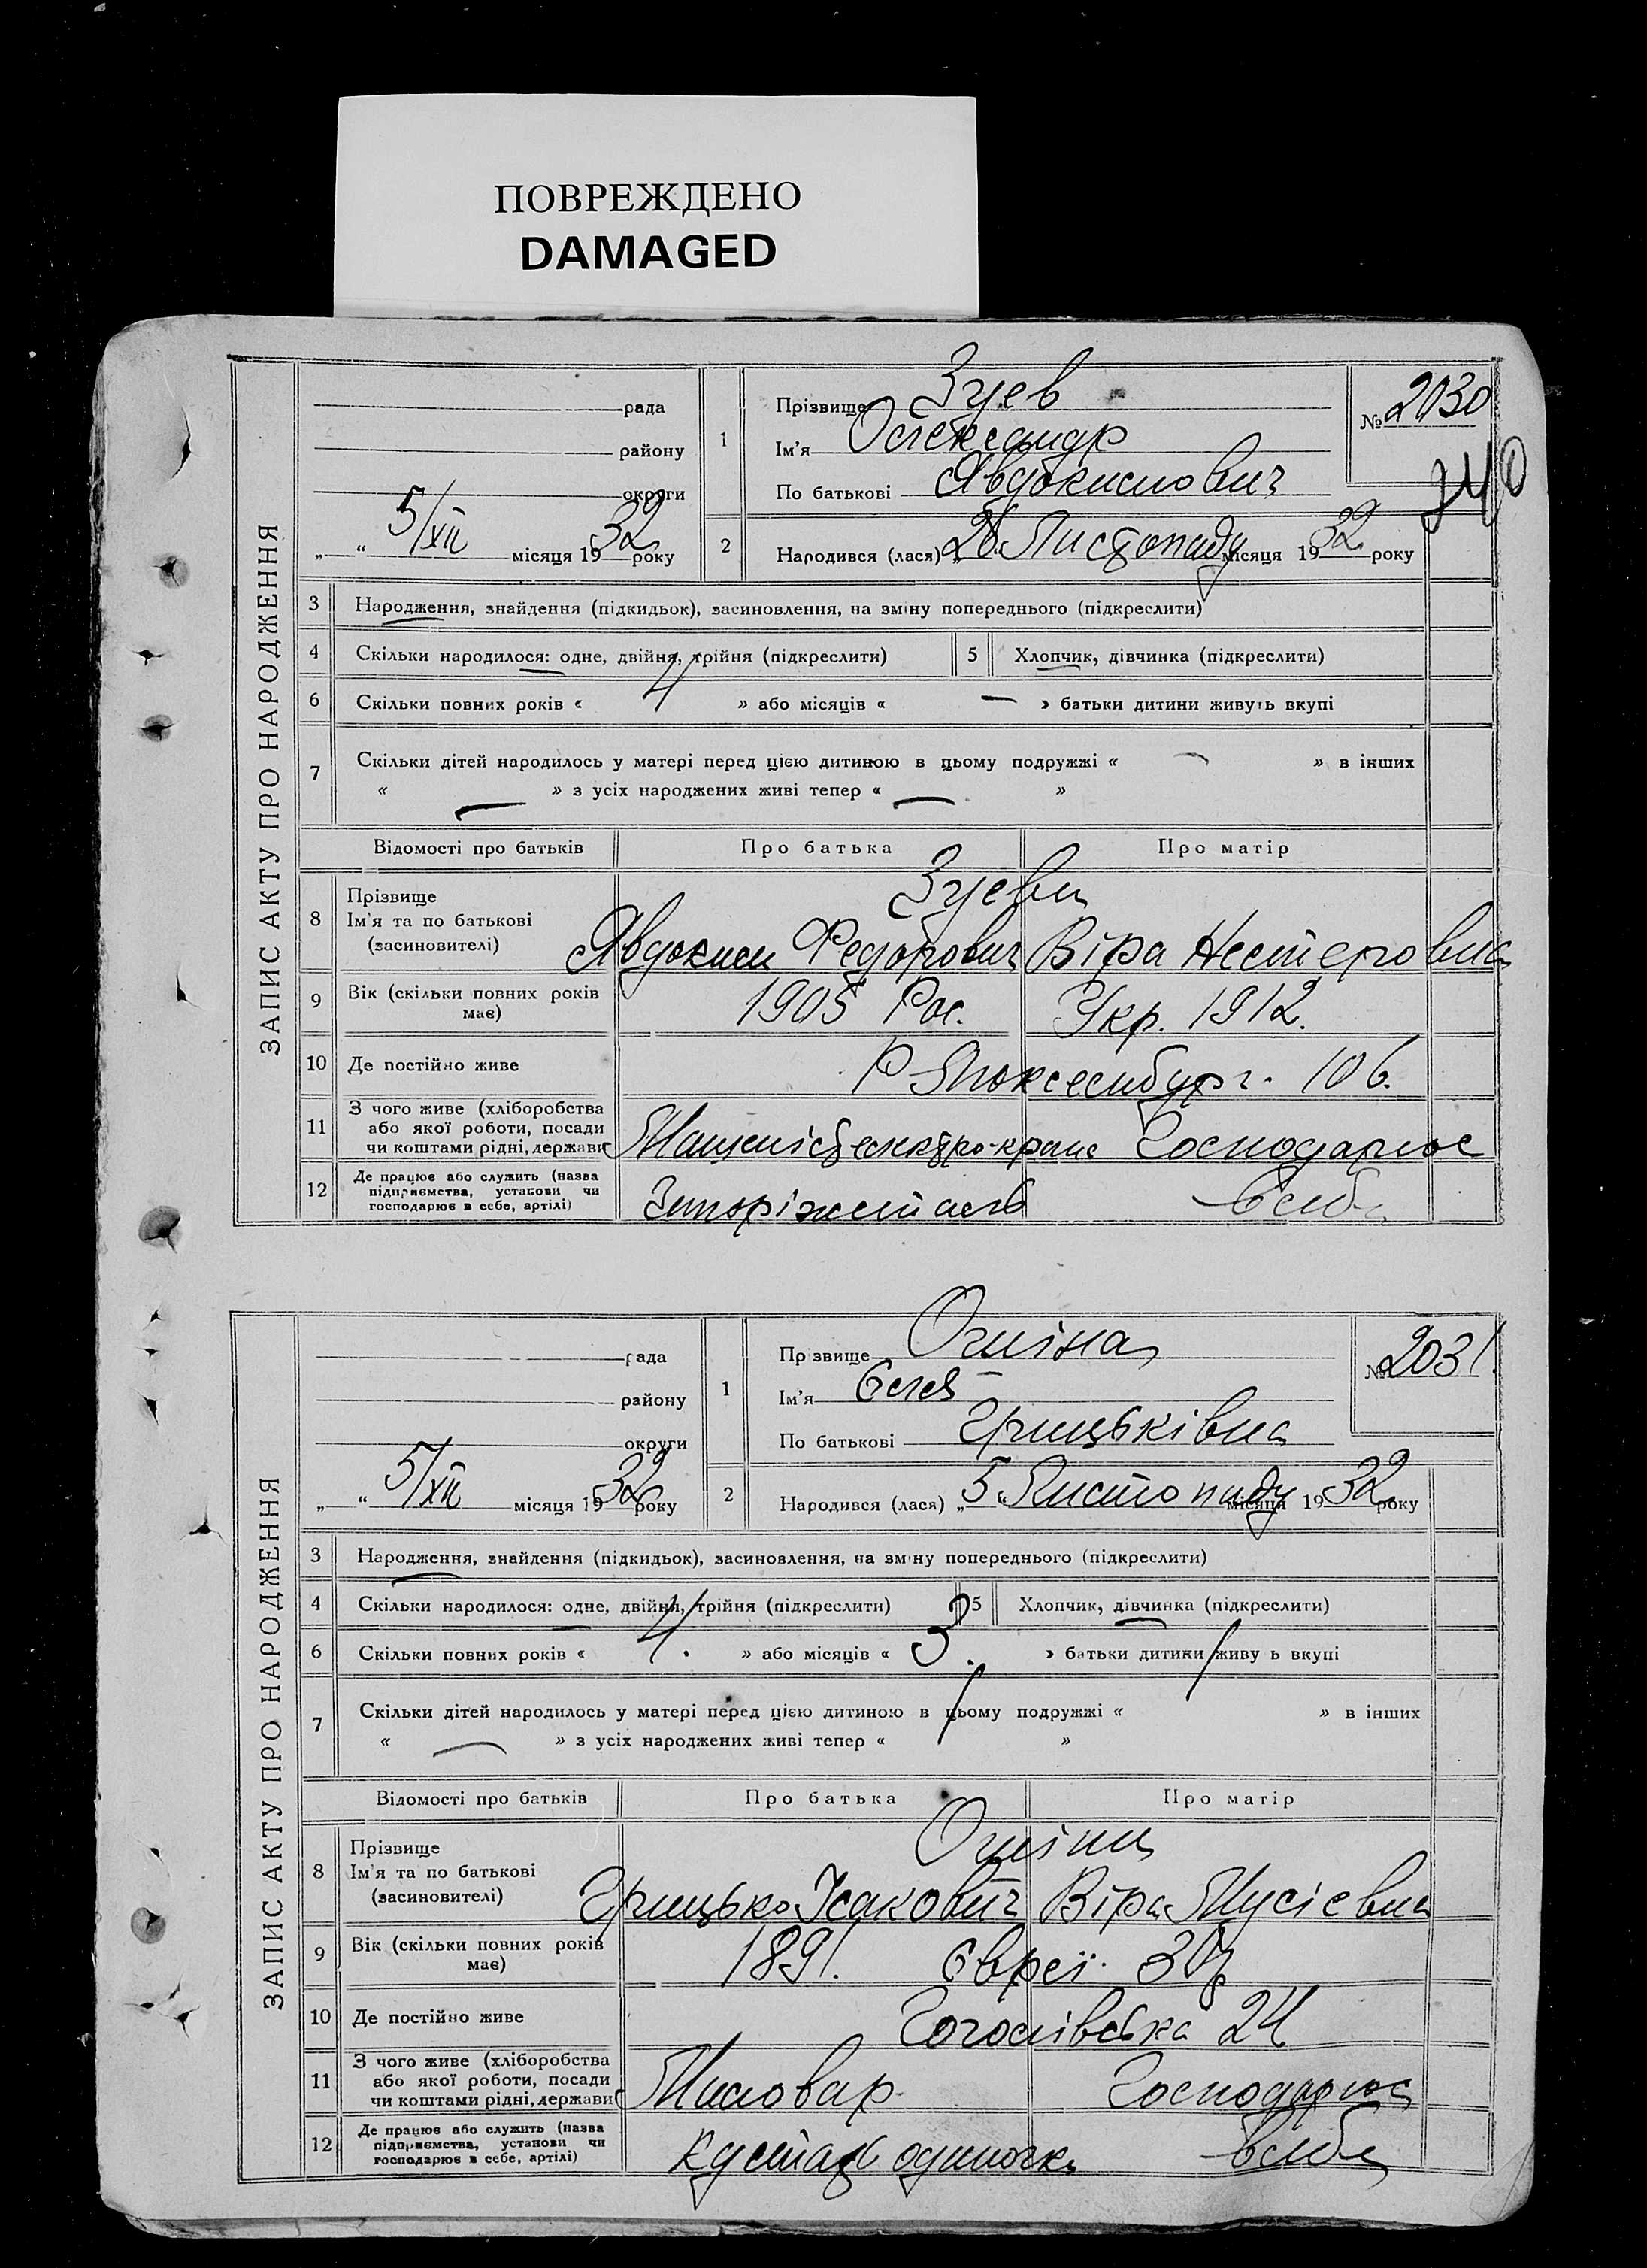 ПОВРЕЖДЕНО
DAMAGED
ЗАПИС АКТУ ПРО НАРОДЖЕННЯ
рада
району
округи
„ “ 5/XII місяця 1932 року
1
Прізвище Зуев
Ім'я Олександр
По батькові Явдокимович
№ 2030
2
Народився (лася) „26 Листопаду місяця 1932 року
3 Народження, знайдення (підкидьок), засиновлення, на зміну попереднього (підкреслити)
4 Скільки народилося: одне, двійня, трійня (підкреслити)
5 Хлопчик, дівчинка (підкреслити)
6 Скільки повних років « 4 » або місяців « — » батьки дитини живуть вкупі
7 Скільки дітей народилось у матері перед цією дитиною в цьому подружжі « — » в інших
« — » з усіх народжених живі тепер « — »
Відомості про батьків Про батька Про матір
8 Прізвище
Ім'я та по батькові
(засиновителі)
Зуеви
Явдоким Федорович Віра Нестеровна
9 Вік (скільки повних років
має)
1905 Рос. Укр. 1912.
10 Де постійно живе Р Люксембург. 106.
11 З чого живе (хліборобства
або якої роботи, посади
чи коштами рідні, держави
Машиніст електро-крана Господарює
12 Де працює або служить (назва
підприємства, установи чи
господарює в себе, артілі)
Запоріжсталь в себе
ЗАПИС АКТУ ПРО НАРОДЖЕННЯ
рада
району
округи
„ “ 5/XII місяця 1932 року
1
Прізвище
Ім'я
По батькові Грицьківна
№ 2031.
2
Народився (лася) „5 Листопаду місяця 1932 року
3 Народження, знайдення (підкидьок), засиновлення, на зміну попереднього (підкреслити)
4 Скільки народилося: одне, двійня, трійня (підкреслити)
5 Хлопчик, дівчинка (підкреслити)
6 Скільки повних років « 4. » або місяців « 3. » батьки дитини живуть вкупі
7 Скільки дітей народилось у матері перед цією дитиною в цьому подружжі « / » в інших
« — » з усіх народжених живі тепер « / »
Відомості про батьків Про батька Про матір
8 Прізвище
Ім'я та по батькові
(засиновителі)
Грицько Ісакович Віра Мусієвна
9 Вік (скільки повних років
має)
1891. Євреї.
10 Де постійно живе Гоголівська 24
11 З чого живе (хліборобства
або якої роботи, посади
чи коштами рідні, держави
Миловар Господарює
12 Де працює або служить (назва
підприємства, установи чи
господарює в себе, артілі)
Кустарь одиночка в себе